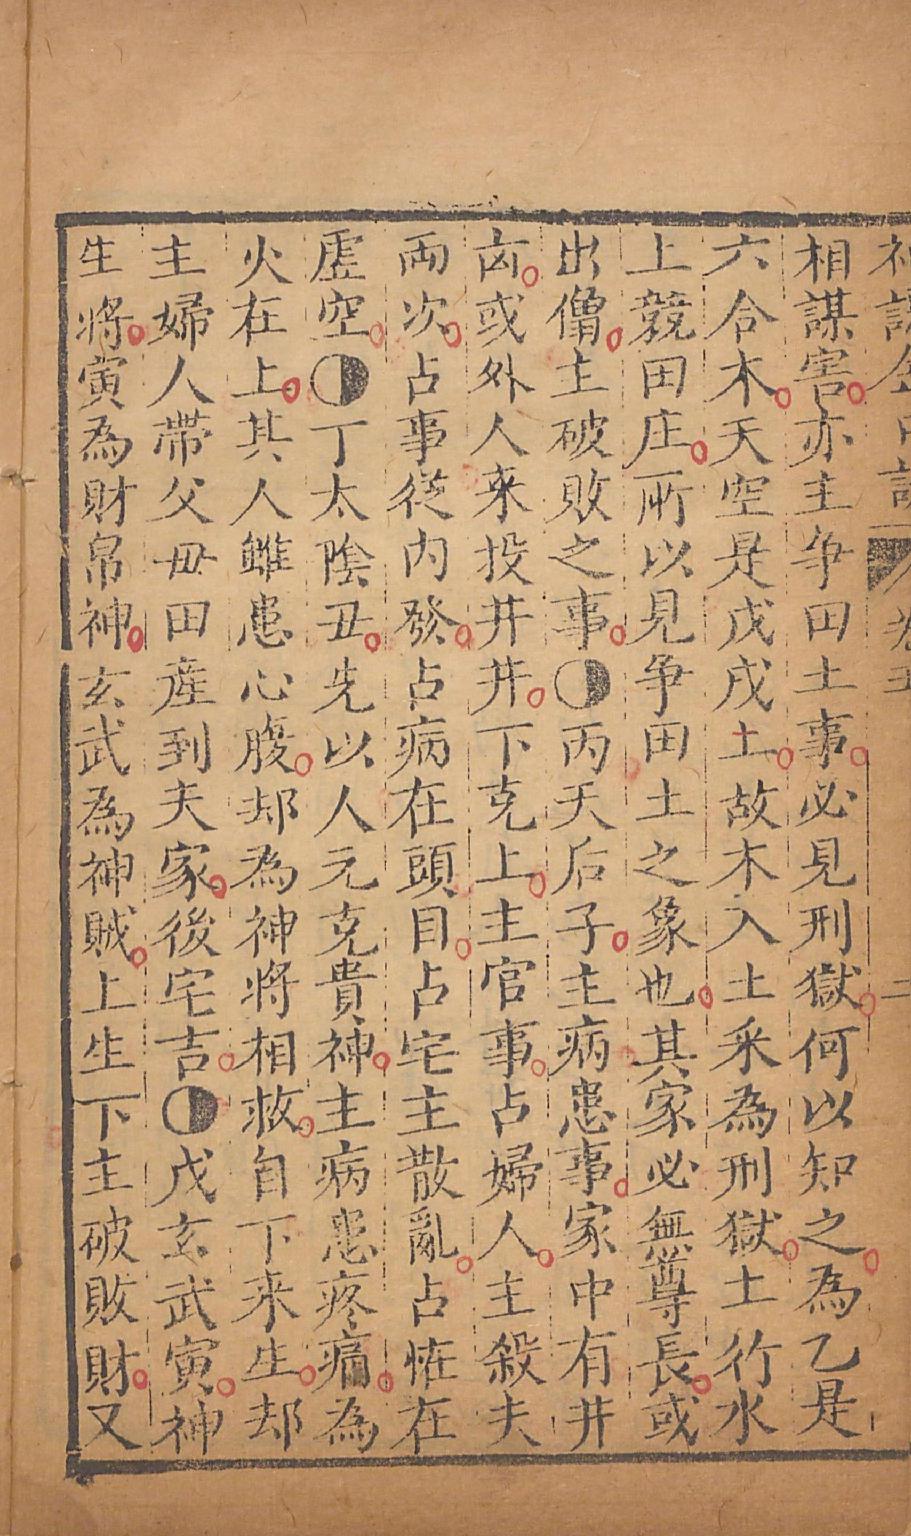 相謀害亦主争田土事必見刑獄何以知之為乙是
六合木天空是戊戌土故木入土来為刑獄土行水
上競田庄所以見争田土之象也其家必無尊長或
出僧主破敗之事丙天后子主病患事家中有井
凶或外人来投井井下克上主官事占婦人主殺夫
两次占事從内發占病在頭目占宅主散亂占恠在
虚空丁太陰丑先以人元克貴神主病患疼痛為
火在上其人雖患心腹却為神将相救自下来生却
主婦人帶父毋田産到夫家後宅吉戊玄武寅神
生將寅為財帛神玄武為神賊上生下主破敗財又